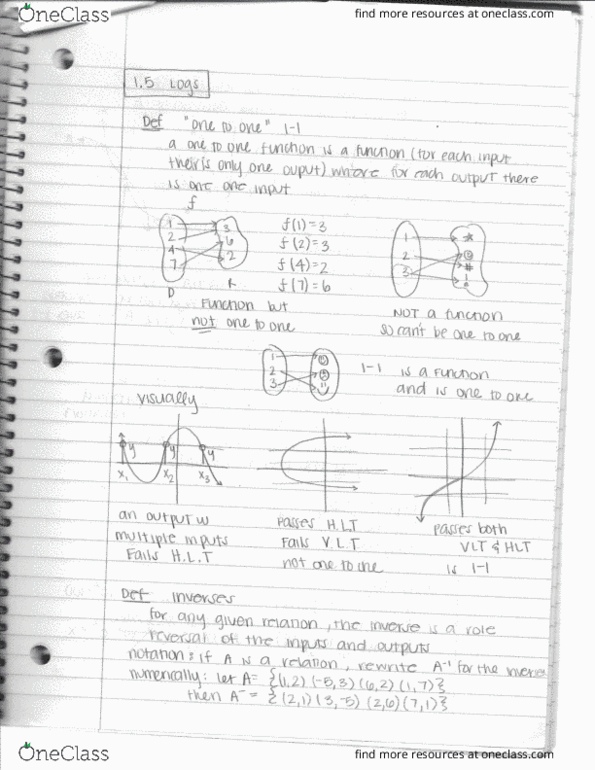 OneClass
find more resources at oneclass.com
1.5 Logs
Def "one to one" 1-1
a one to one function is a function (for each input
their is only one ouput) where for each output there
is one one input
f
1 2 4 7
3 6 2
D
R
f(1)=3
f(2)=3
f(4)=2
f(7)=6
Function but
not one to one
1 2 3
NOT a function
so can't be one to one
1 2 3
1-1 is a function
and is one to one
visually
y y y
x1 x2 x3
an output w
multiple inputs
Fails H.L.T
Passes H.L.T
Fails V.L.T
not one to one
Passes both
VLT & HLT
is 1-1
Def inverses
for any given relation, the inverse is a role
reversal of the inputs and outputs
notation: if A is a relation, rewrite A⁻¹ for the inverse
numerically: let A= {(1,2) (-5,3) (6,2) (1,7)}
then A⁻= {(2,1) (3,-5) (2,6) (7,1)}
OneClass
find more resources at oneclass.com